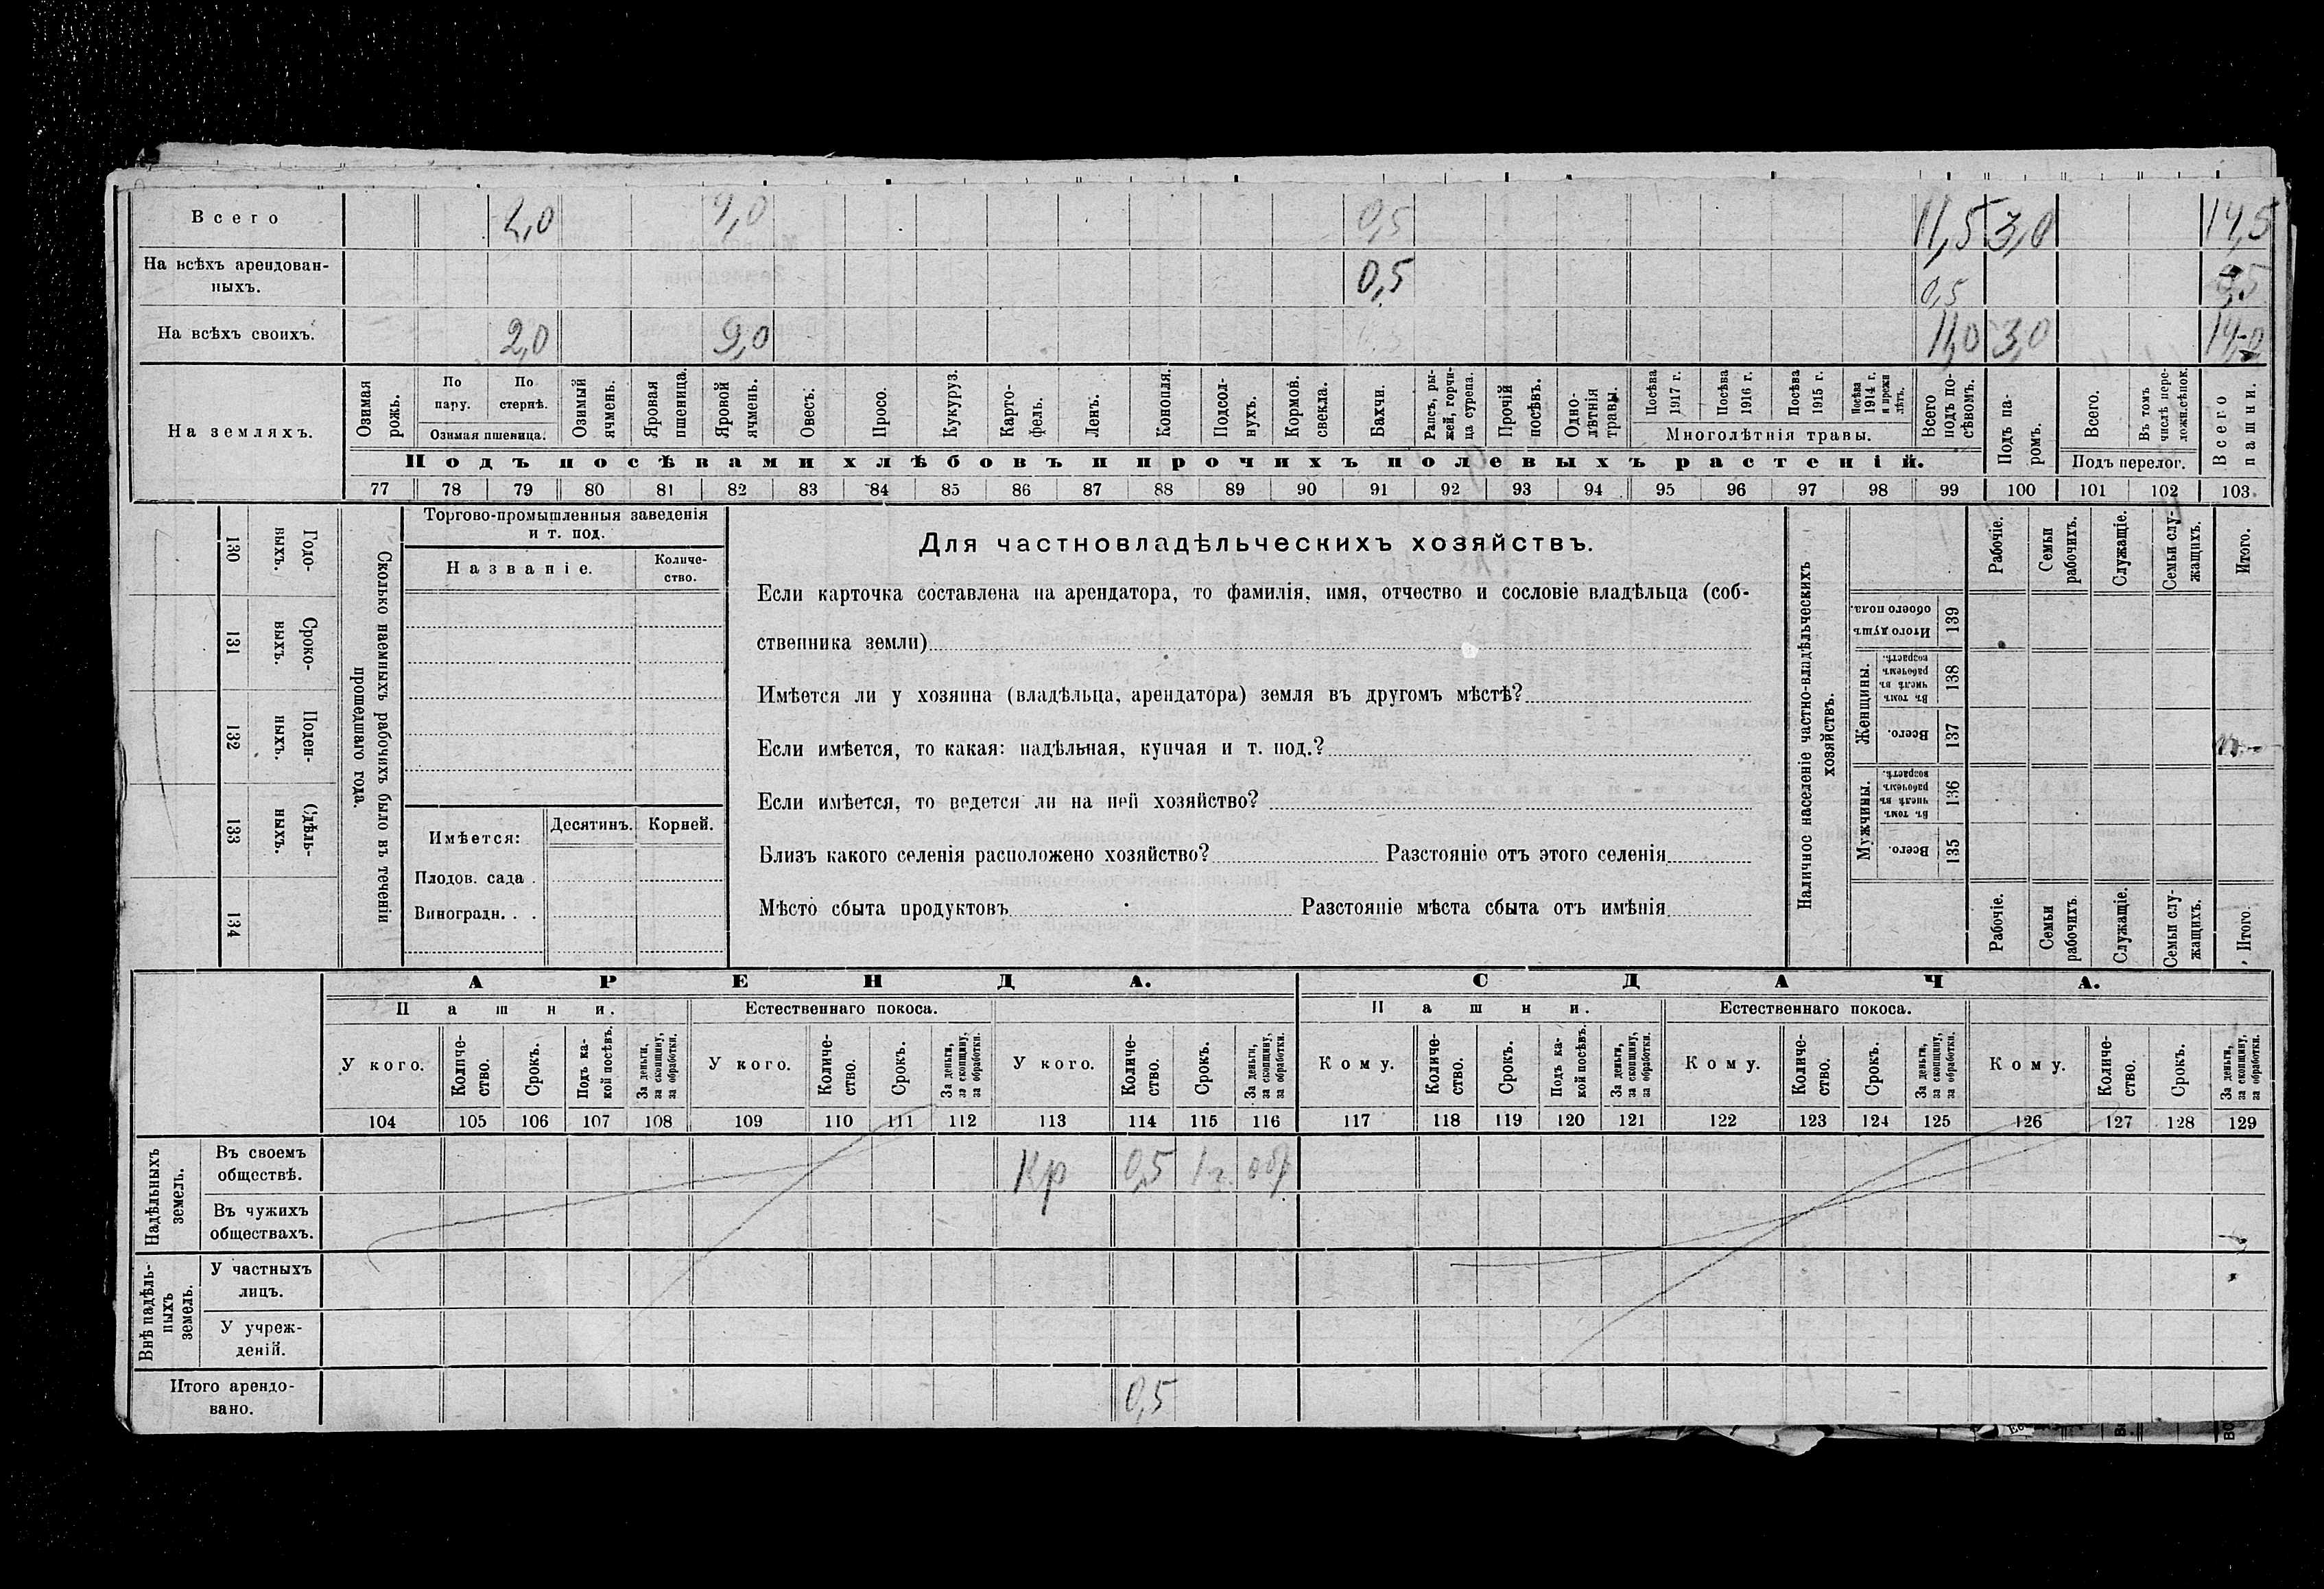 Всего 2,0 9,0 0,5 11,5 3,0 14,5
На всѣхъ арендован-
ныхъ. 0,5 0,5 0,5
На всѣхъ своихъ. 2,0 9,0 11,0 3,0 14,0
На земляхъ.
Озимая рожь.
По пару.
По стернѣ.
Озимая пшеница.
Озимый ячмень.
Яровая пшеница.
Яровой ячмень.
Овесъ.
Просо.
Кукуруз.
Карто-
фель.
Ленъ.
Конопля.
Подсол-
нухъ.
Кормов. свекла.
Бахчи.
Рапсъ, ры-
жей, горчи-
ца сурепа.
Прочій посѣвъ.
Одно-
лѣтнія травы.
Посѣва 1917 г.
Посѣва 1916 г.
Посѣва 1915 г.
Посѣва 1914 г. и прежн лѣтъ.
Многолѣтнія травы.
Всего подъ по-
сѣвомъ.
Подъ па-
ромъ.
Всего.
Въ томъ числѣ пере-
ложн.сѣнок.
Подъ перелог.
Всего пашни.
Подъ посѣвами хлѣбовъ и прочихъ полевыхъ растеній.
77 78 79 80 81 82 83 84 85 86 87 88 89 90 91 92 93 94 95 96 97 98 99 100 101 102 103
130 Годо-
ныхъ.
131 Сроко-
выхъ.
132 Поден-
ныхъ.
133 Сдѣль-
ныхъ.
134
Сколько наемныхъ рабочихъ было въ теченіи
прошедшаго года.
Торгово-промышленныя заведенія
и т. под.
Названіе.
Количе-
ство.
Имѣется: Десятинъ. Корней.
Плодов. сада .
Виноградн. . .
Для частновладѣльческихъ хозяйствъ.
Если карточка составлена на арендатора, то фамилія, имя, отчество и сословіе владѣльца (соб-
ственника земли)
Имѣется ли у хозяина (владѣльца, арендатора) земля въ другомъ мѣстѣ?
Если имѣется, то какая: надѣльная, купчая и т. под.?
Если имѣется, то ведется ли на ней хозяйство?
Близъ какого селенія расположено хозяйство? Разстояніе отъ этого селенія
Мѣсто сбыта продуктовъ Разстояніе мѣста сбыта отъ имѣнія
Наличное населеніе частно-владѣльческихъ
хозяйствъ.
Рабочіе.
Семьи рабочихъ.
Служащіе.
Семьи слу-
жащихъ.
Итого.
Итого душъ обоего пола. 139
Женщины.
Въ томъ числѣ въ рабочемъ возрастѣ. 138
Всего. 137
Мужчины.
Въ томъ числѣ въ рабочемъ возрастѣ. 136
Всего. 135
Рабочіе.
Семьи рабочихъ.
Служащіе.
Семьи слу-
жащихъ.
Итого.
АРЕНДА. СДАЧА.
Пашни. Естественнаго покоса. Пашни. Естественнаго покоса.
У кого.
Количе-
ство.
Срокъ.
Подъ ка-
кой посѣвъ.
За деньги, за скопщину, за обработки.
У кого.
Количе-
ство.
Срокъ.
За деньги, за скопщину, за обработки.
У кого.
Количе-
ство.
Срокъ.
За деньги, за скопщину, за обработки.
Кому.
Количе-
ство.
Срокъ.
Подъ ка-
кой посѣвъ.
За деньги, за скопщину, за обработки.
Кому.
Количе-
ство.
Срокъ.
За деньги, за скопщину, за обработки.
Кому.
Количе-
ство.
Срокъ.
За деньги, за скопщину, за обработки.
104 105 106 107 108 109 110 111 112 113 114 115 116 117 118 119 120 121 122 123 124 125 126 127 128 129
Надѣльныхъ земель.
Въ своемъ
обществѣ. Кр 0,5 1 г. обр
Въ чужихъ
обществахъ.
Внѣ надѣль-
ныхъ земель.
У частныхъ
лицъ.
У учреж-
деній.
Итого арендо-
вано. 0,5